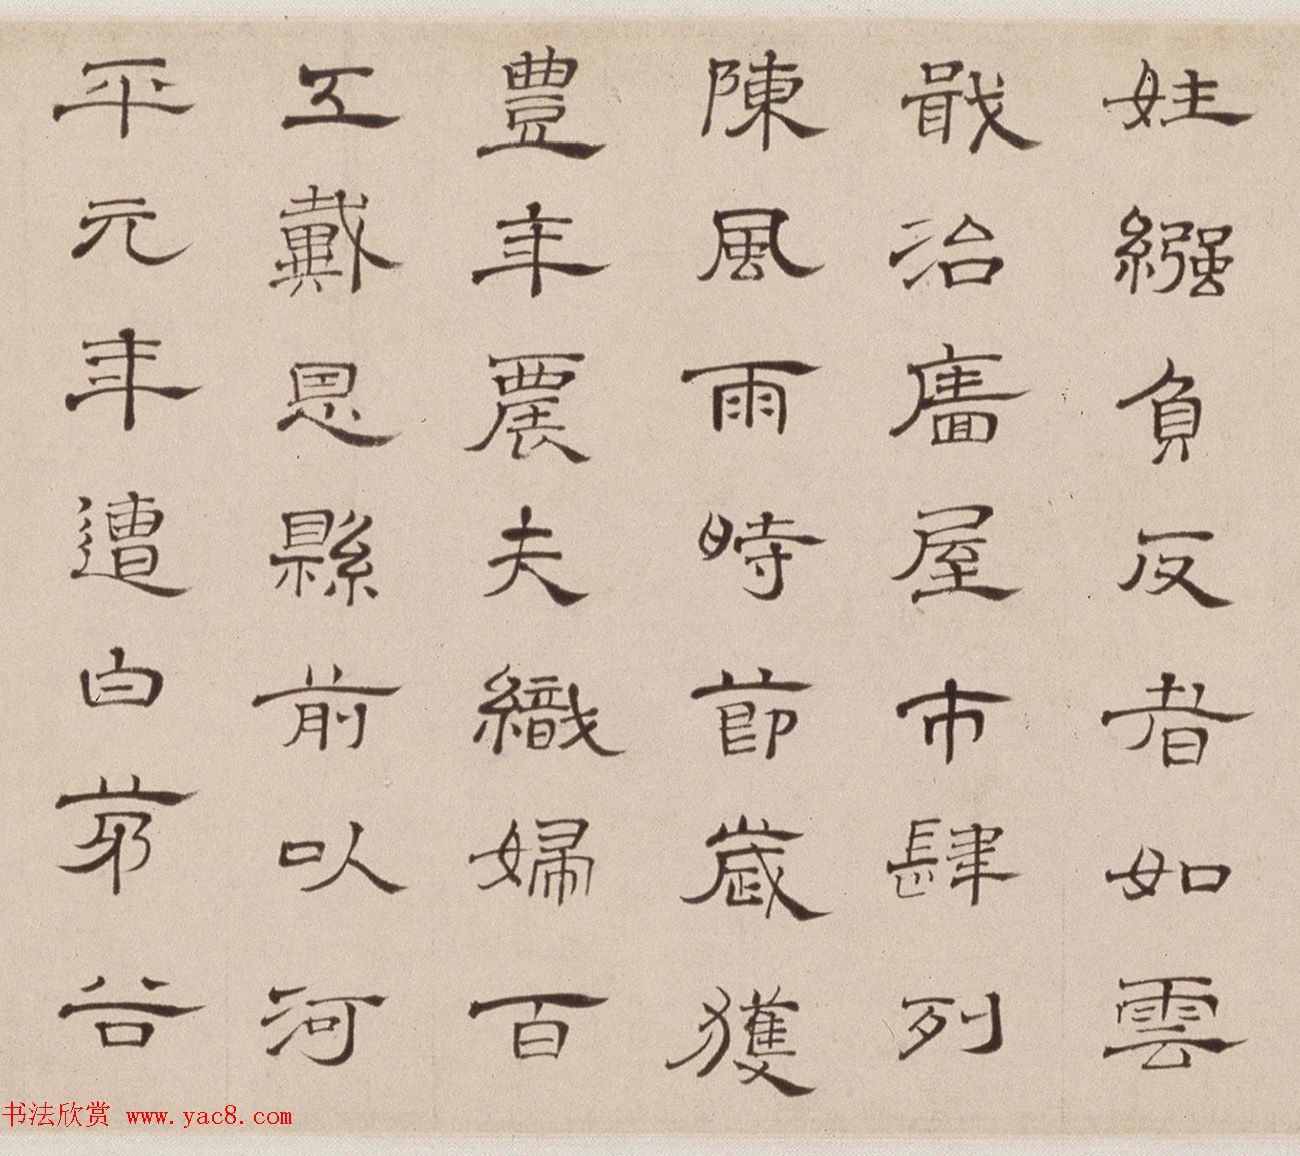 姓繈負反者如雲
戢治廧屋市肆列
陳風雨時節歲獲
豐年農夫織婦百
工戴恩縣前以河
平元年遭白茅谷
书法欣赏 www.yac8.com